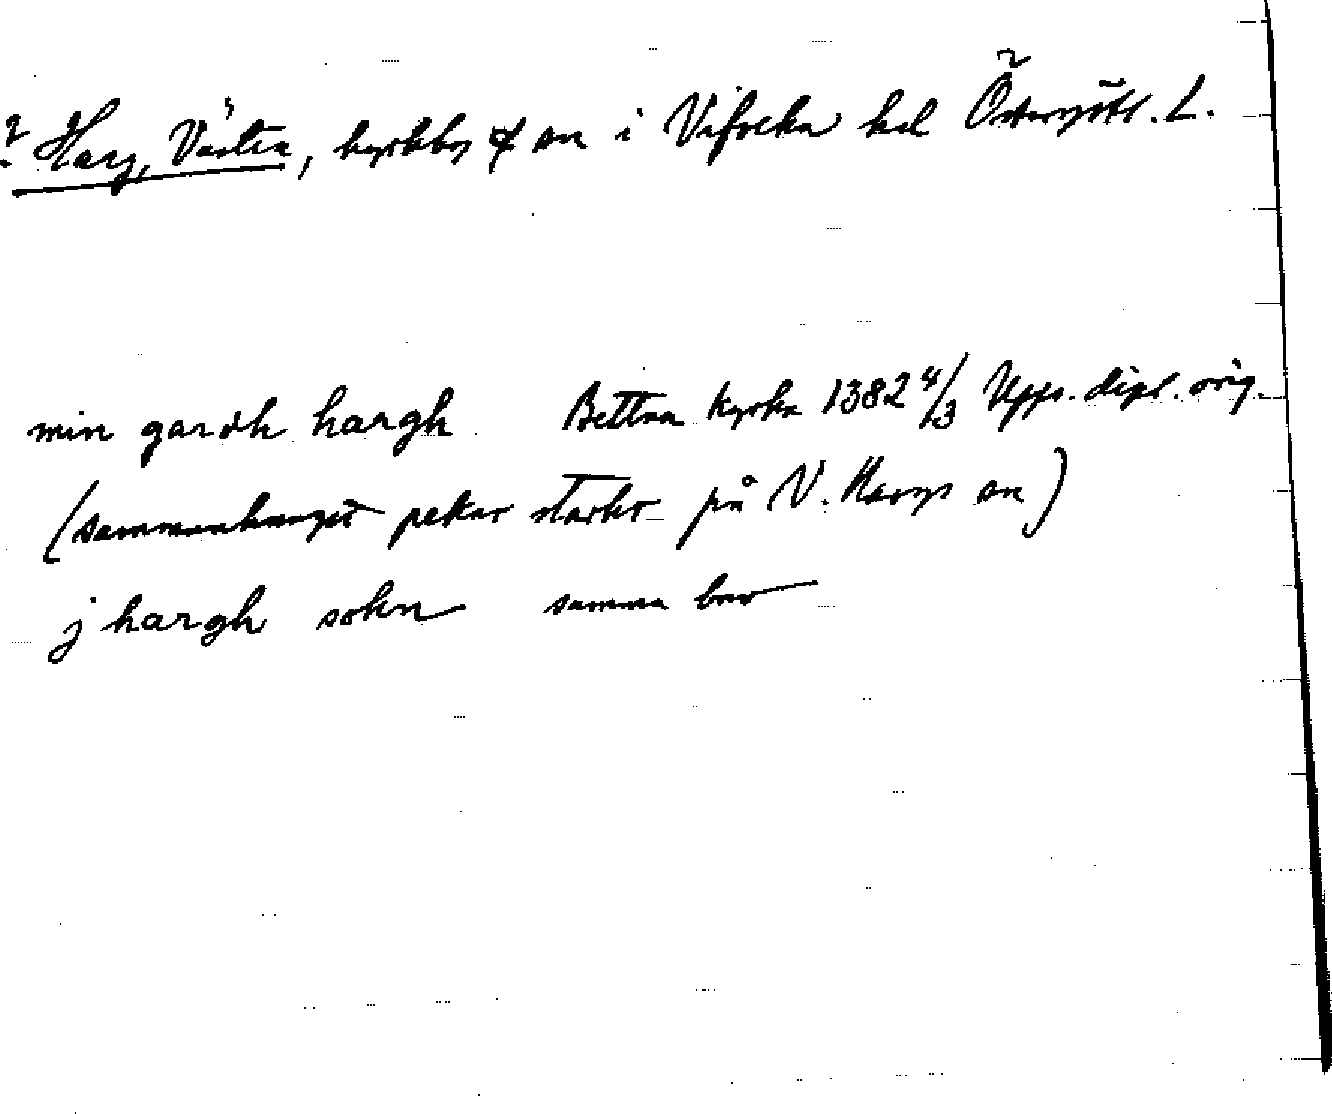 ? Harg, Västra, kyrkby o sn i Vifolka hd Östergötl. L.
min gardh hargh Bettna kyrka 1382 4/3 Upps. dipl. orig.
(sammanhanget pekar starkt på V. Hargs sn)
j hargh sokn samma brev